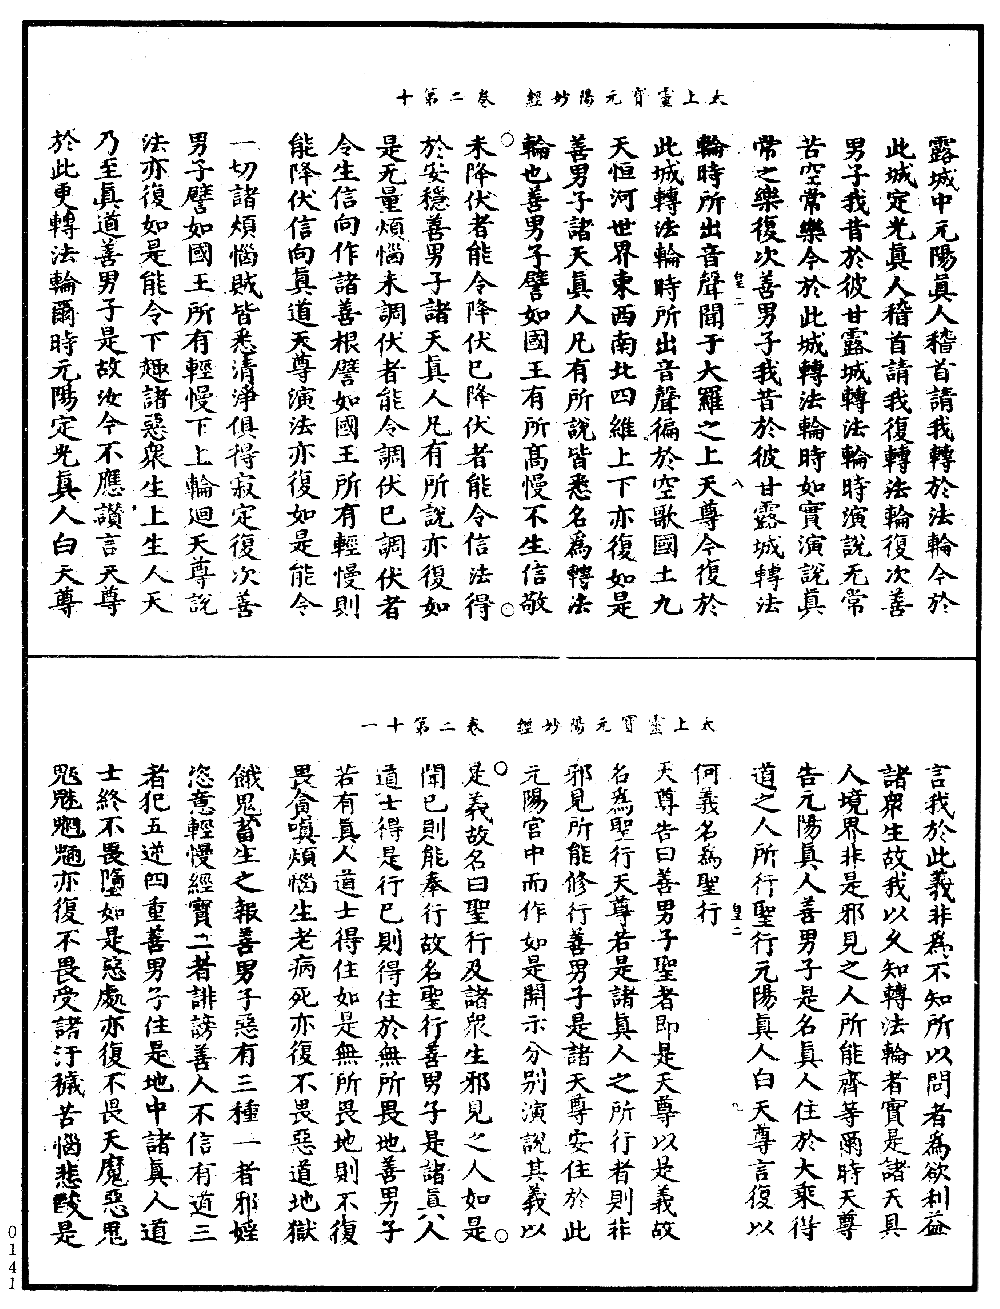 太上靈寶元陽妙經　卷二第十
露城中元陽真人稽首請我轉於法輪今於
此城定光真人稽首請我復轉法輪復次善
男子我昔於彼甘露城轉法輪時演說无常
苦空常樂今於此城轉法輪時如實演說真
常之樂復次善男子我昔於彼甘露城轉法
皇二
八
輪時所出音聲聞于大羅之上天尊今復於
此城轉法輪時所出音聲徧於空歌國土九
天恒河世界東西南北四維上下亦復如是
善男子諸天真人凡有所說皆悉名為轉法
輪也善男子譬如國王有所高慢不生信敬
未降伏者能令降伏已降伏者能令信法得
於安穩善男子諸天真人凡有所說亦復如
是无量煩惱未調伏者能令調伏已調伏者
令生信向作諸善根譬如國王所有輕慢則
能降伏信向真道天尊演法亦復如是能令
一切諸煩惱賊皆悉清淨俱得寂定復次善
男子譬如國王所有輕慢下上輪迴天尊說
法亦復如是能令下趣諸惡衆生上生人天
乃至真道善男子是故汝今不應讃言天尊
於此更轉法輪爾時元陽定光真人白天尊
太上靈寶元陽妙經　卷二第十一
言我於此義非為不知所以問者為欲利益
諸衆生故我以久知轉法輪者實是諸天具
人境界非是邪見之人所能齊等爾時天尊
告元陽真人善男子是名真人住於大乘得
道之人所行聖行元陽真人白天尊言復以
皇二
九
何義名為聖行
天尊告曰善男子聖者即是天尊以是義故
名為聖行天尊若是諸真人之所行者則非
邪見所能修行善男子是諸天尊安住於此
元陽宫中而作如是開示分別演說其義以
是義故名曰聖行及諸衆生邪見之人如是
聞已則能奉行故名聖行善男子是諸真人
道士得是行已則得住於無所畏地善男子
若有真人道士得住如是無所畏地則不復
畏貪嗔煩惱生老病死亦復不畏惡道地獄
餓鬼畜生之報善男子惡有三種一者邪婬
恣意輕慢經寶二者誹謗善人不信有道三
者犯五逆四重善男子住是地中諸真人道
士終不畏墮如是惡處亦復不畏天魔惡鬼
魑魅魍魎亦復不畏受諸汙穢苦惱悲酸是
0141